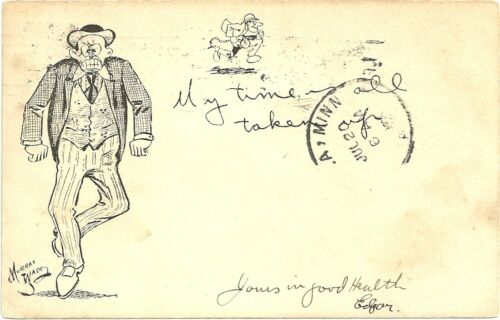 My time is all
taken up
A, MINN
JUL 20
Murray
Wade
Yours in good Health
Edgar.